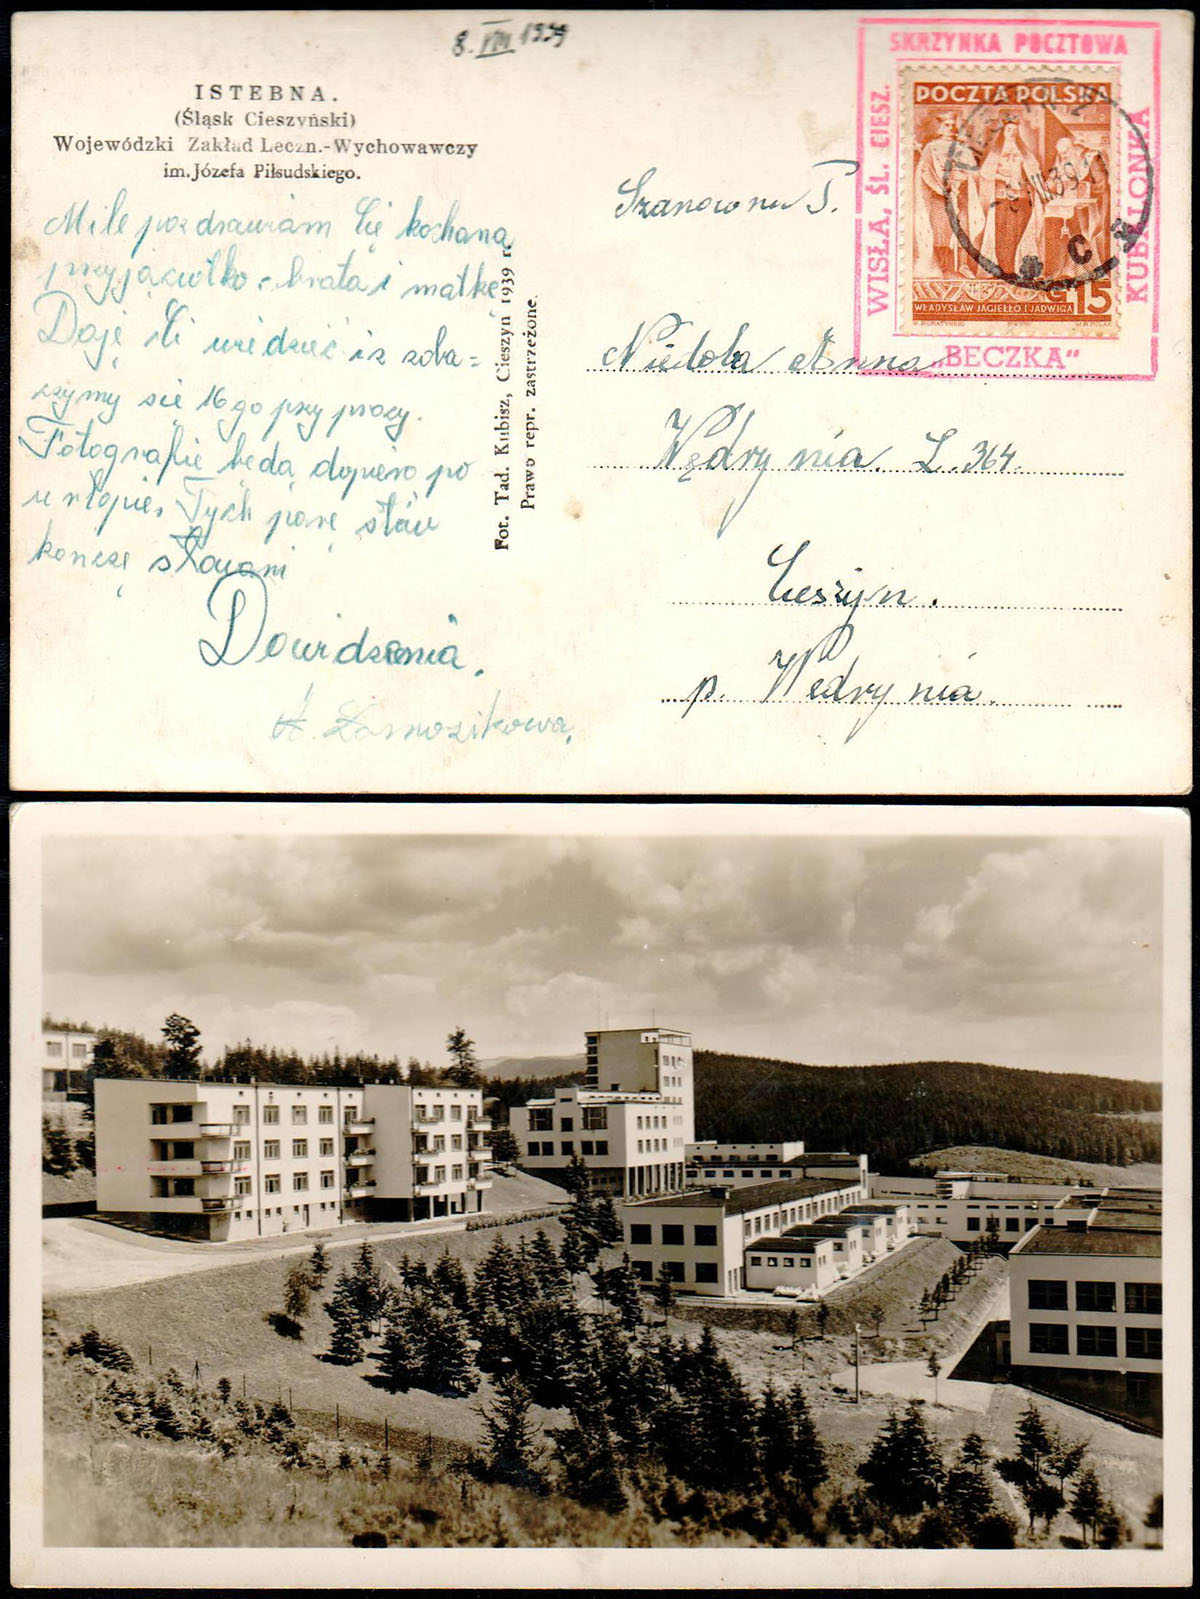 8. VIII 1939
ISTEBNA.
(Śląsk Cieszyński)
Wojewódzki Zakład Leczn.-Wychowawczy
im. Józefa Piłsudskiego.
Mile pozdrawiam Cię kochaną
przyjaciółko - brata i matkę
Daję Ci wiedzieć iż zoba=
czymy się 16go przy pracy.
Fotografie będą dopiero po
urlopie. Tych parę słów
kończę słowami
Dowidzenia.
Fot. Tad. Kubisz, Cieszyn 1939 r.
Prawo repr. zastrzeżone.
SKRZYNKA POCZTOWA
WISŁA, ŚL. CIESZ.
KUBALONKA
„BECZKA“
POCZTA POLSKA
WŁADYSŁAW JAGIEŁŁO I JADWIGA
G 15
CIESZYN 2
C
Szanowna P.
Niedoba Anna
Wędrynia. L. 364.
Cieszyn.
p. Wedrynia.